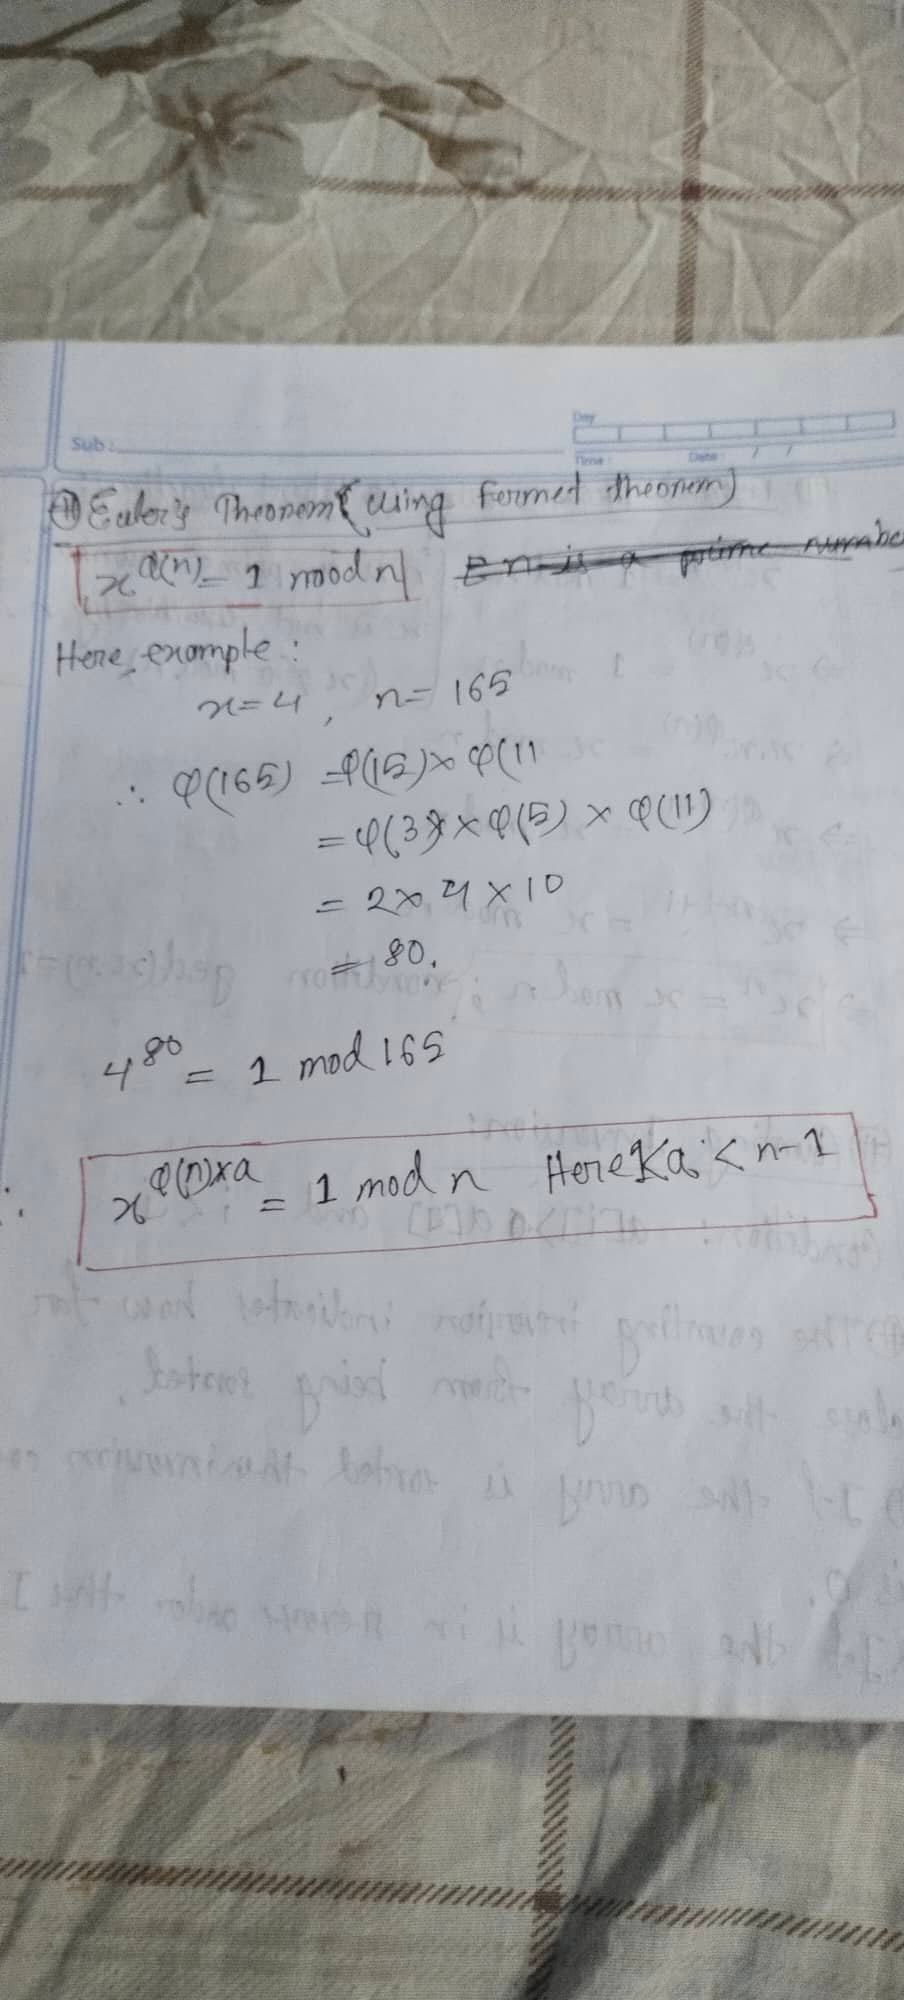 Sub :
Day
Time : Date : / /
Euler's Theorem (Using Fermet theorem)
x^φ(n) = 1 mod n n is a prime numbe
Here, example :
x = 4 , n = 165
∴ φ(165) = φ(15) × φ(11
= φ(3) × φ(5) × φ(11)
= 2 × 4 × 10
= 80.
4^80 = 1 mod 165
∴ x^φ(n)×a = 1 mod n Here 1<a < n-1